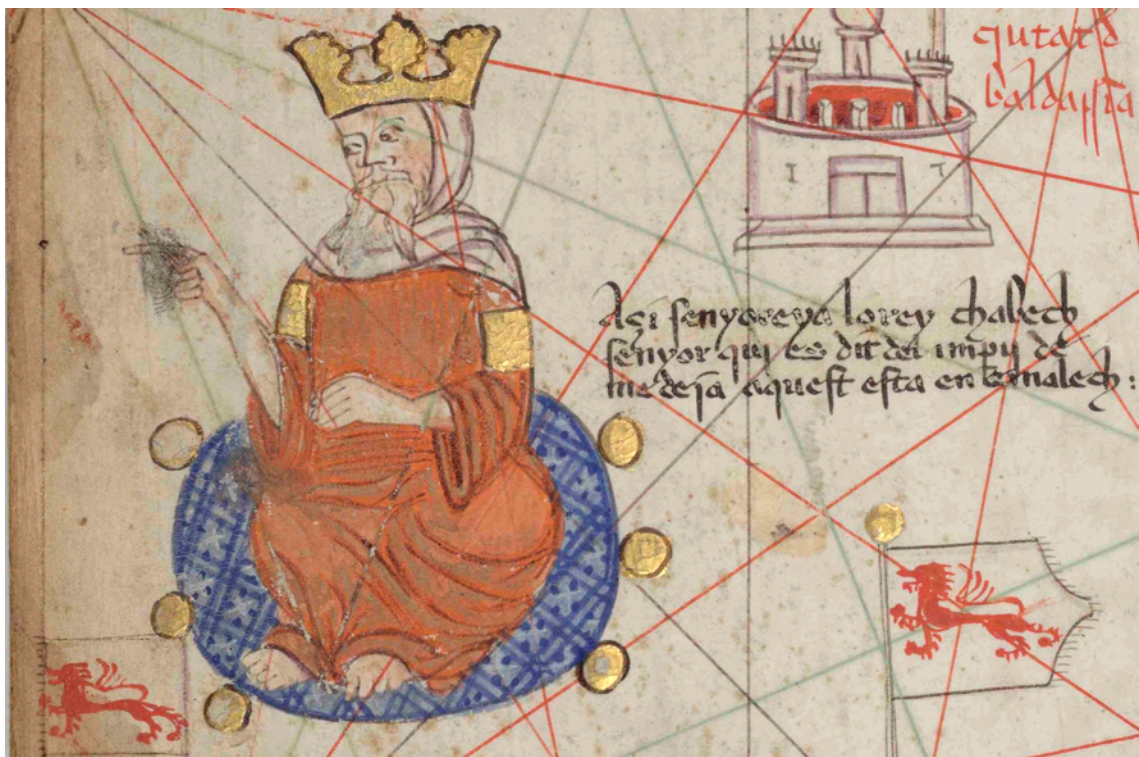 ciutat d
baldassia
Açi senyoreya lorey chabech
senyor qui es dit del impij de
medeja aquest esta en